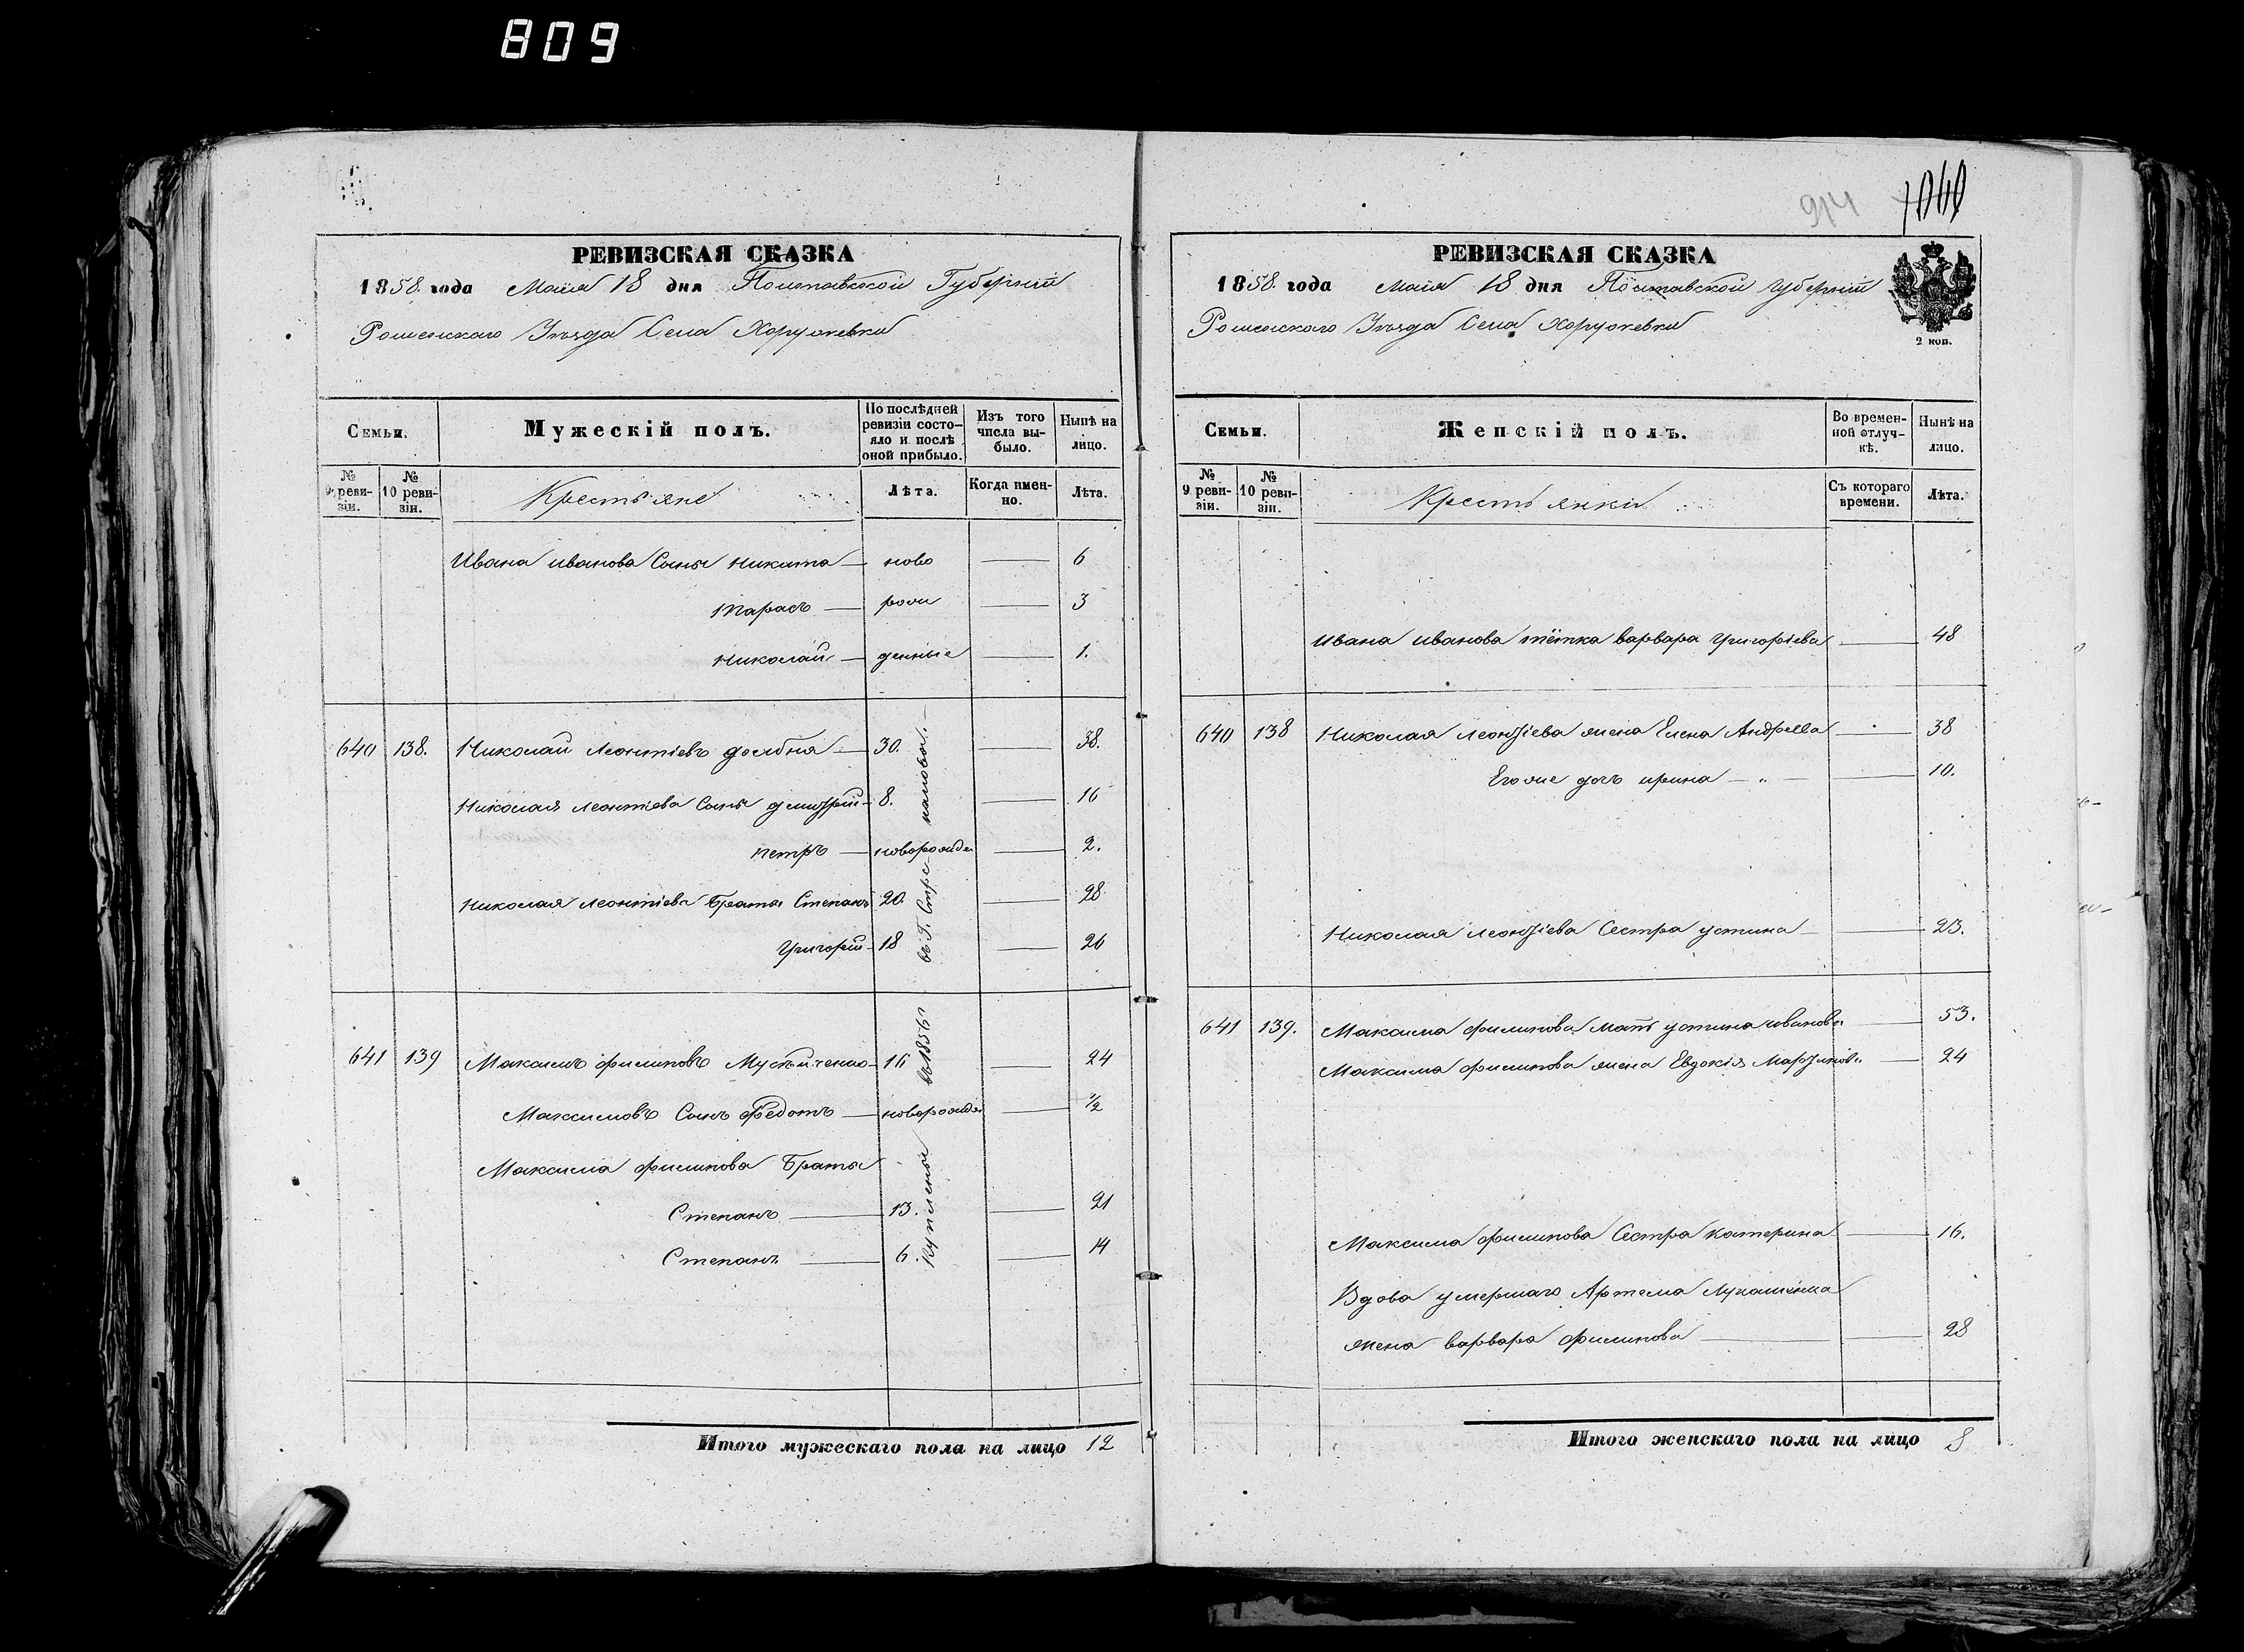 809
914 1040
РЕВИЗСКАЯ СКАЗКА
1858. года Маія 18 дня Полтавской Губерніи
Роменскаго Уѣзда Села Хоружевки
Семьи.
Мужескій полъ.
По послѣдней ревизіи состояло и послѣ оной прибыло.
Изъ того числа выбыло.
Нынѣ на лицо.
№ 9 ревизіи.
№ 10 ревизіи.
Крестьяне
Лѣта.
Когда именно.
Лѣта.
Ивана иванова Сыны никита — ново — 6
тарасъ — рож — 3
николай — денные — 1.
640 138. Николай Леонтіевъ долбня — 30. — 38.
Николая Леонтіева Сыны дмитрій - 8. — 16
петръ — новорожде — 2.
николая Леонтіева Браты Степанъ 20. — 28.
григорій - 18 — 26
641 139 Максимъ филиповъ - 16 — 24
Максимовъ Сынъ Федотъ — новорожде — 1/2
Максима филипова Браты
Степанъ — 13. — 21
Степанъ — 6. — 14
Купленые въ 1856
Итого мужескаго пола на лицо 12
РЕВИЗСКАЯ СКАЗКА
1858. года маія 18 дня Полтавской губерніи
Роменскаго Уѣзда Села Хоружевки
2 коп.
Семьи.
Женскій полъ.
Во временной отлучкѣ.
Нынѣ на лицо.
№ 9 ревизіи.
№ 10 ревизіи.
Крестьянки
Съ котораго времени.
Лѣта.
Ивана иванова тётка варвара григоріева — 48
640 138 Николая леонтіева жена Елена Андреева — 38
Егоже дочь ирина — 10.
Николая леонтіева Сестра устина — 23.
641 139. Максима филипова мать устина иванова — 53.
Максима филипова жена Евдокія Мартинова — 24
Максима филипова Сестра катерина — 16.
Вдова умершаго Артема Лукашенка
жена варвара филипова — 28
Итого женскаго пола на лицо 8